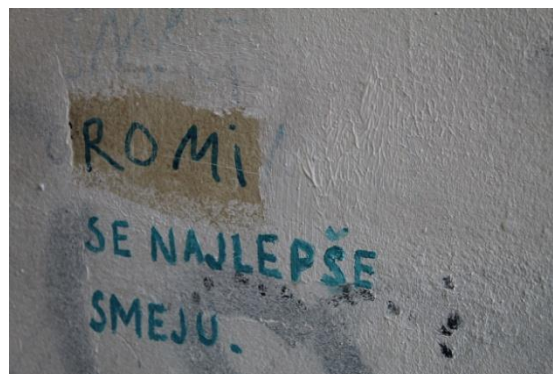 ROMi
SE NAJLEPŠE
SMEJU.